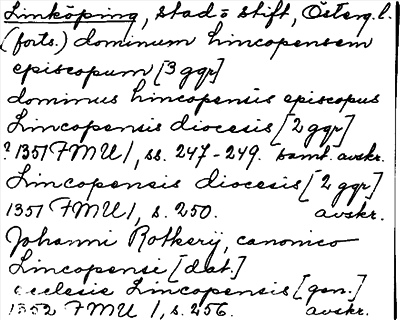 Linköping, stad o stift, Österg.l.
(forts.) dominum lincopensem
episcopum [3 ggr]
dominus lincopensis episcopus
Lincopensis diocesis [2 ggr]
? 1351 FMU 1, ss. 247-249. samt. avskr.
Lincopensis diocesis [2 ggr]
1351 FMU 1, s. 250. avskr.
Johanni Rotkerij, canonico
Lincopensi [dat.]
ecclesie Lincopensis [gen.]
1352 FMU 1, s. 256. avskr.